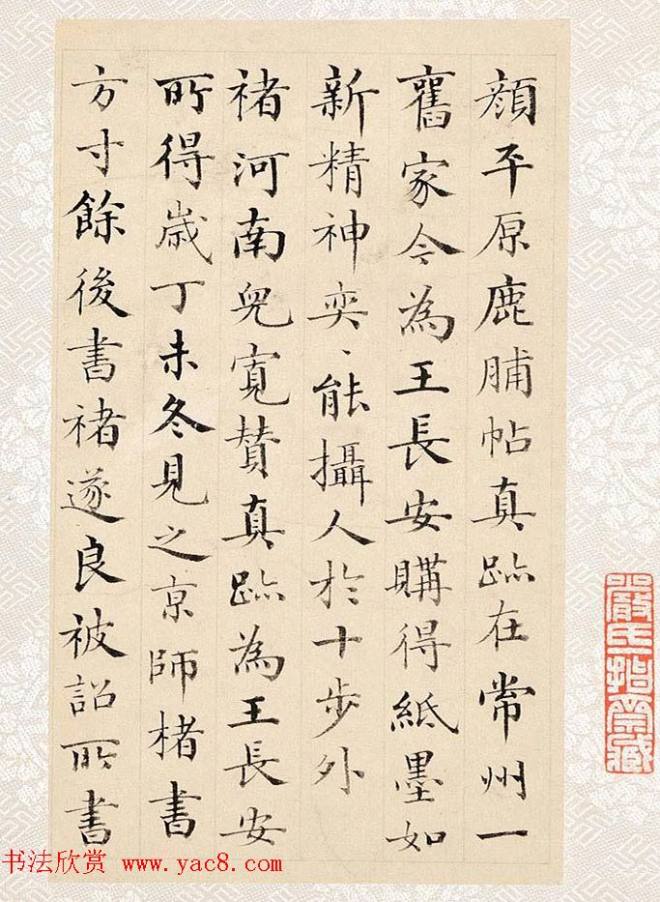 顔平原鹿脯帖真跡在常州一
舊家今為王長安購得紙墨如
新精神奕、能攝人於十步外
褚河南兒寬贊真跡為王長安
所得歲丁未冬見之京師楮書
方寸餘後書褚遂良被詔所書
嚴氏指齋藏
书法欣赏 www.yac8.com